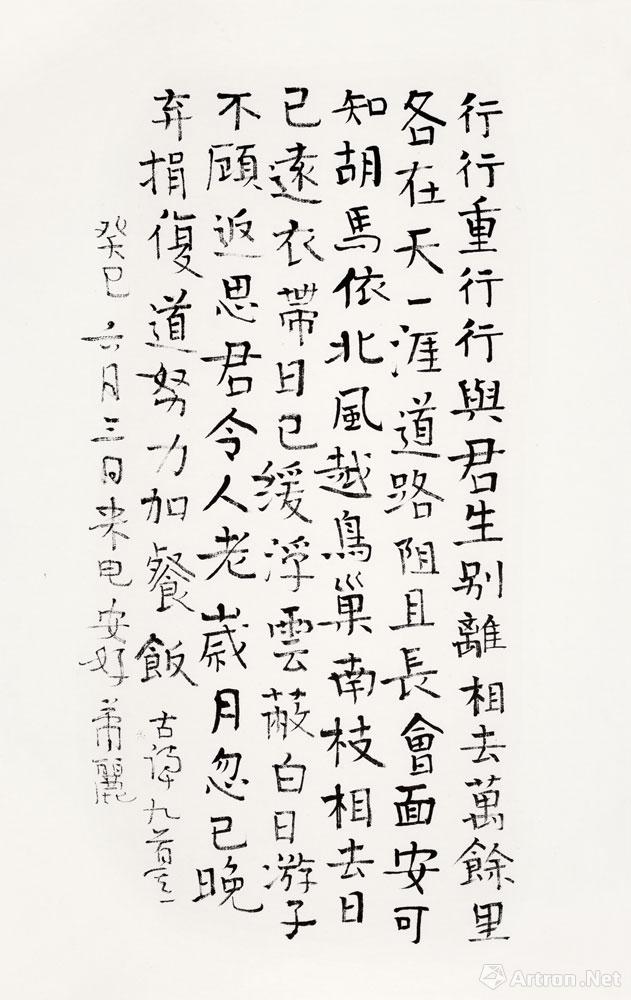 行行重行行與君生别離相去萬餘里
各在天一涯道路阻且長會面安可
知胡馬依北風越鳥巢南枝相去日
已遠衣帶日已缓浮雲蔽白日游子
不顧返思君令人老歲月忽已晚
弃捐復道努力加餐飯 古詩十九首之一
癸巳六月三日来电安好蕭麗
Artron.Net